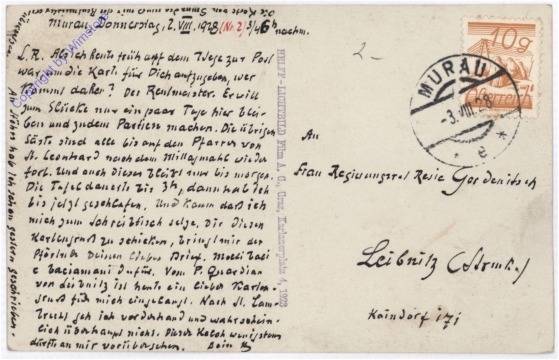 Murau, Donnerstag, 2. VIII. 1928 (Nr. 2) 3/4 6h nachm.
L. R. Als ich heute früh auf dem Wege zur Post
war, um die Karte für Dich aufzugeben, wer
kommt daher? Der Rentmeister. Er will
zum Glücke nur ein paar Tage hier blei-
ben und zudem Partien machen. Die übrigen
Gäste sind alle bis auf den Pfarrer von
St. Leonhard nach dem Mittagmahl wieder
fort. Und auch dieser bleibt nur bis morgen.
Die Tafel dauerte bis 3h, dann hab ich
bis jetzt geschlafen. Und kaum daß ich
mich zum Schreibtisch setze, Dir diesen
Kartengruß zu schicken, bringt mir der
Pförtner Deinen lieben Brief.
dafür. Vom P. Guardian
von Leibnitz ist heute ein lieber Karten-
gruß für mich eingelangt. Nach St. Lam-
brecht geh ich vorderhand und wahrschein-
lich überhaupt nicht. Dieser Kelch wenigstens
dürfte an mir vorübergehen. Dein
Copyright by Winston's
HELFF-LICHTBILD Film A. G., Graz, Karlauerplatz 4, 1923
2-
10g
MURAU
-3.VIII.28
* e *
An
Frau Regierungsrat Resie Gordenitsch
Leibnitz (Strmk.)
Kaindorf 171